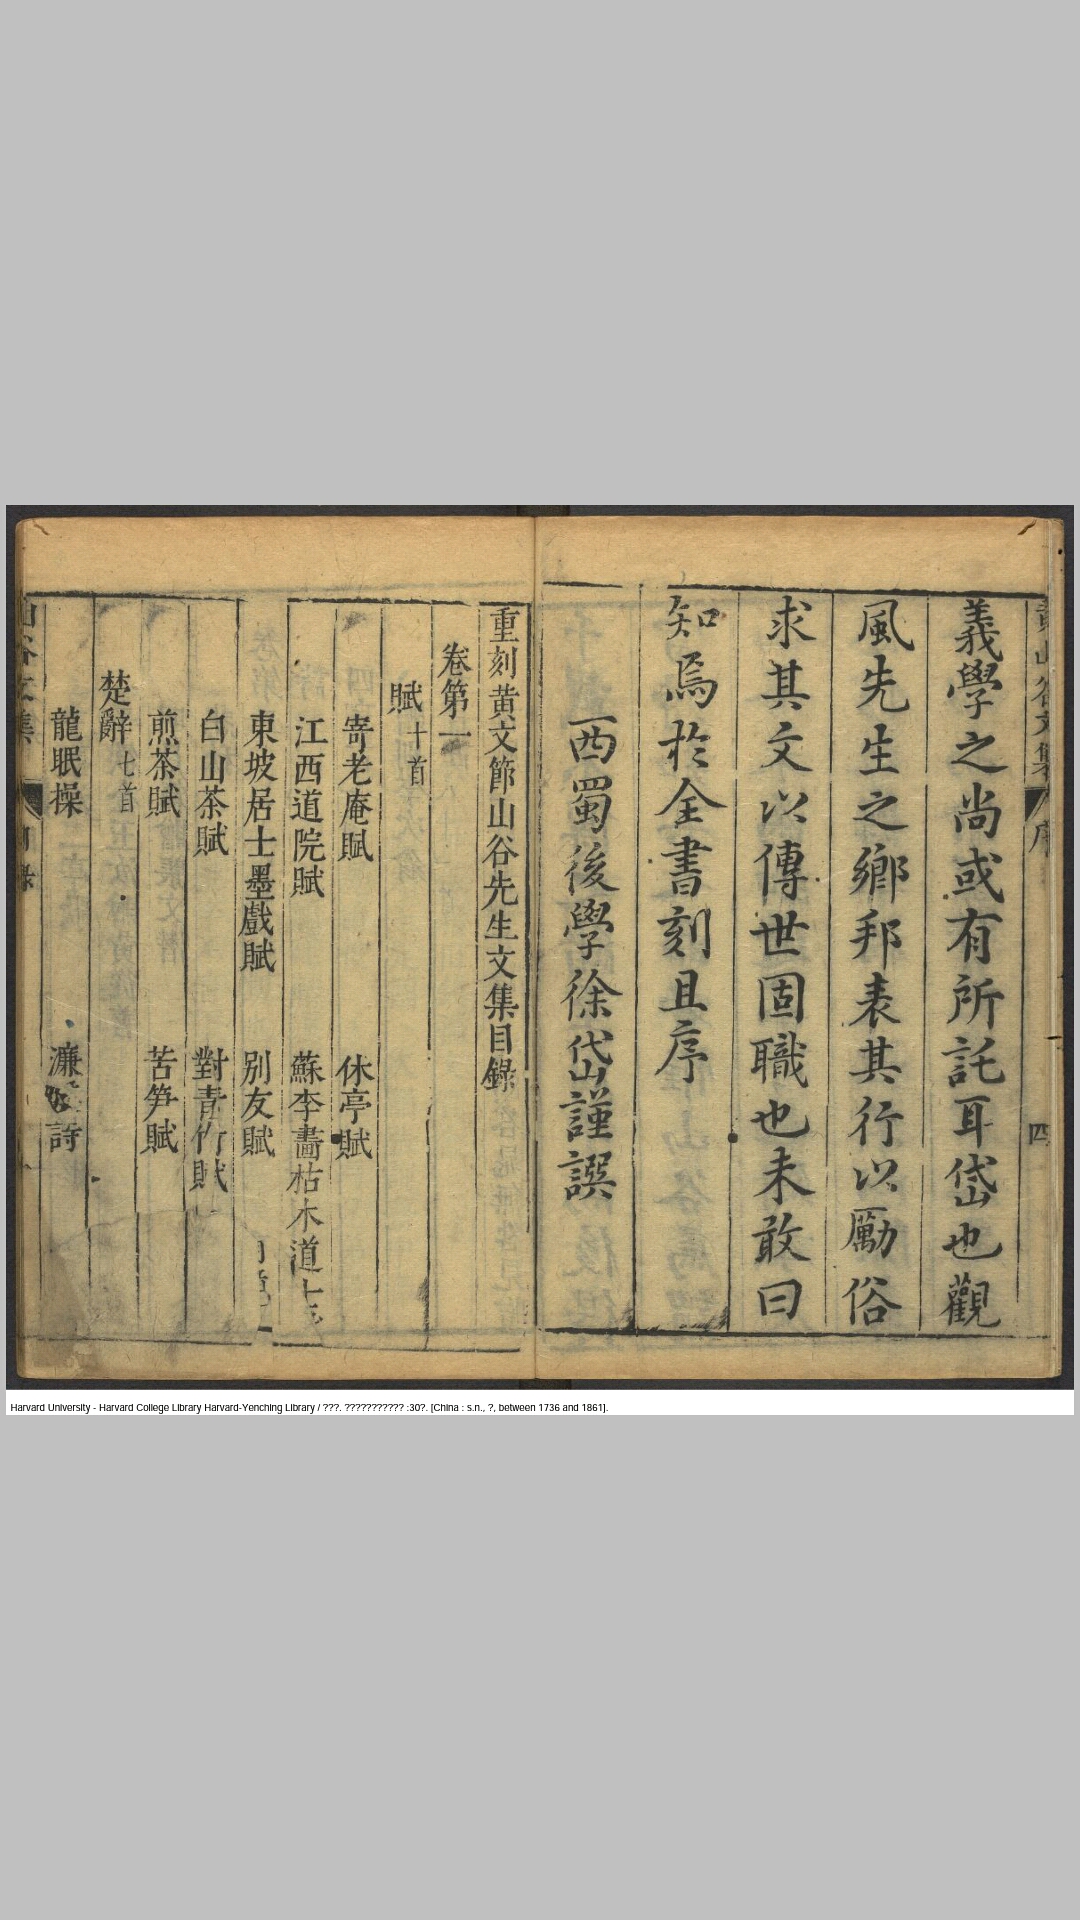 義學之尚或有所託耳岱也觀
風先生之鄉邦表其行以勵俗
求其文以傳世固職也未敢曰
知焉於全書刻且序
西蜀後學徐岱謹譔
四
重刻黄文節山谷先生文集目錄
卷第一
賦十首
寄老庵賦 休亭賦
江西道院賦 蘇李畵枯木道士
東坡居士墨戲賦 別友賦
白山茶賦 對青竹賦
煎茶賦 苦笋賦
楚辭七首
龍眠操 濂詩
Harvard University - Harvard College Library Harvard-Yenching Library / ???. ??????????? :30?. [China : s.n., ?, between 1736 and 1861].